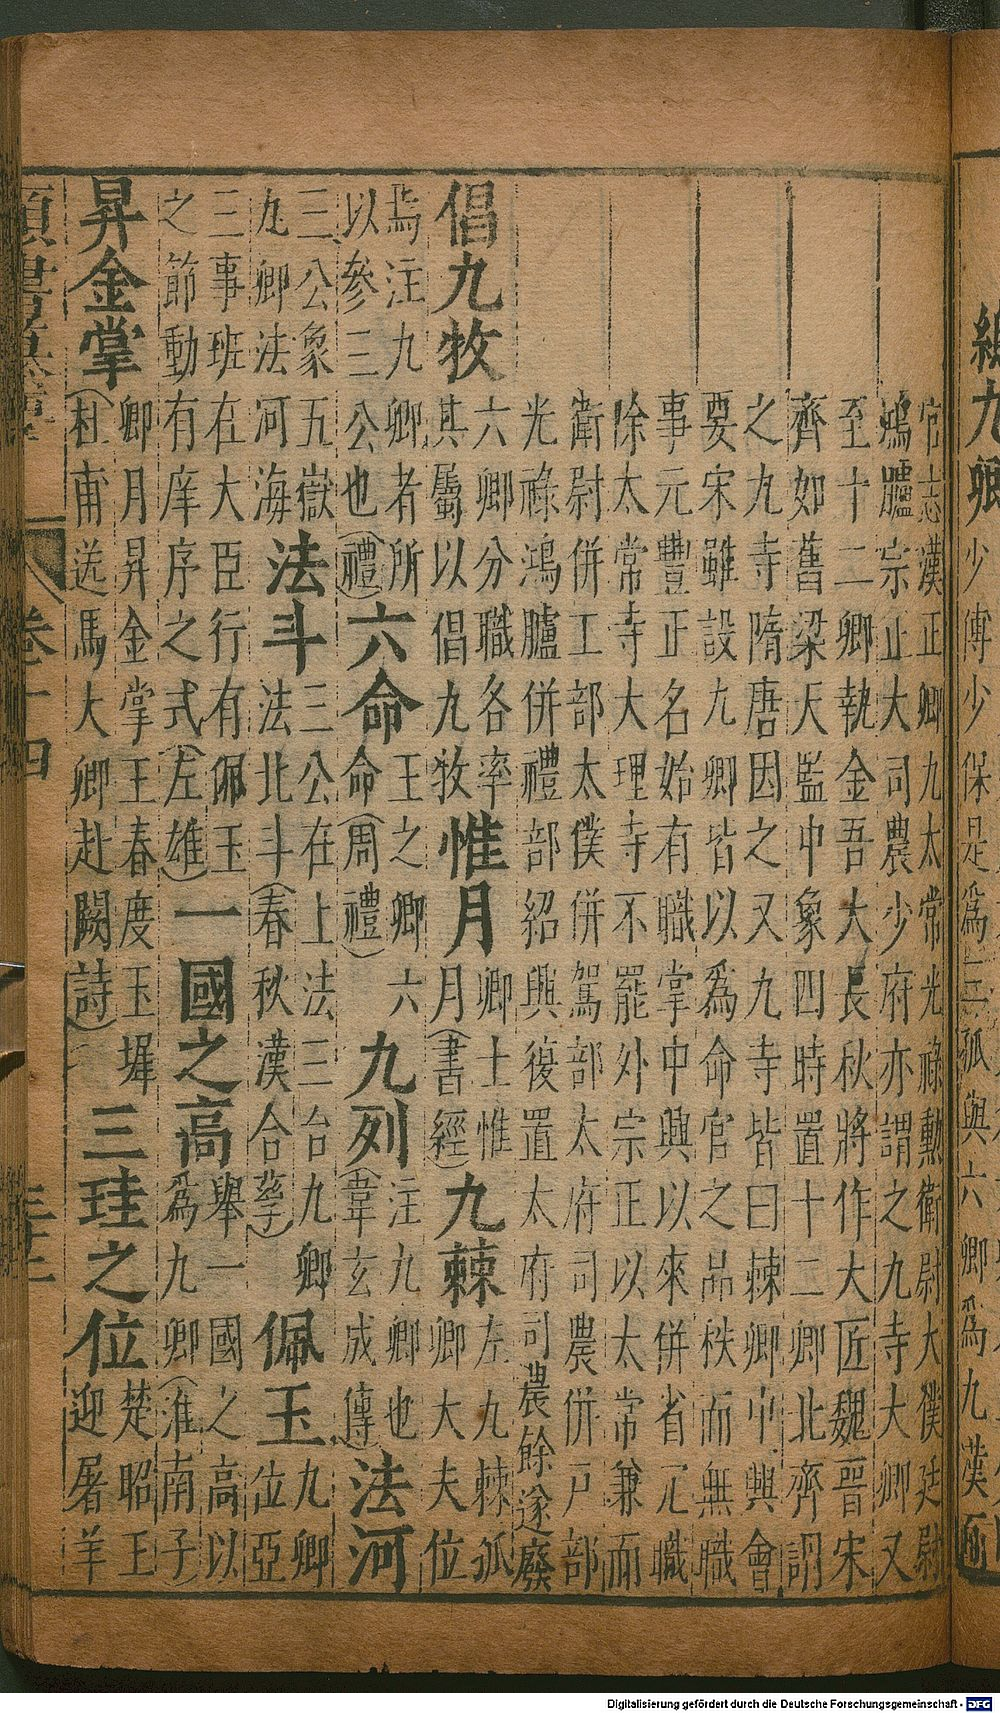 總九卿 少傅少保是爲三孤與六卿爲九漢百
官志漢正卿九太常光祿勳衛尉大僕廷尉
鴻臚宗正大司農少府亦謂之九寺大卿又
至十二卿執金吾大長秋將作大匠魏晉宋
齊如舊梁天監中象四時置十二卿北齊謂
之九寺隋唐因之又九寺皆曰棘卿中興會
要宋雖設九卿皆以爲命官之品秩而無職
事元豐正名始有職掌中興以來併省冗職
除太常寺大理寺不罷外宗正以太常兼而
衛尉併工部太僕併駕部太府司農併戶部
光祿鴻臚併禮部紹興復置太府司農餘遂廢
倡九牧 六卿分職各率其屬以倡九牧 惟月 卿士惟月(書經) 九棘 左九棘孤卿大夫位
焉注九卿者所以參三公也(禮) 六命 王之卿六命(周禮) 九列 注九卿也(韋玄成傳) 法河
三公象五嶽九卿法河海 法斗 三公在上法三台九卿法北斗(春秋漢合孳) 佩玉 九卿位亞
三事班在大臣行有佩玉之節動有庠序之式(左雄) 一國之高 舉一國之高以爲九卿(淮南子)
昇金掌 卿月昇金掌王春度玉墀(杜甫送馬大卿赴闕詩) 三珪之位 楚昭王迎屠羊
類書 卷十四
Digitalisierung gefördert durch die Deutsche Forschungsgemeinschaft - DFG